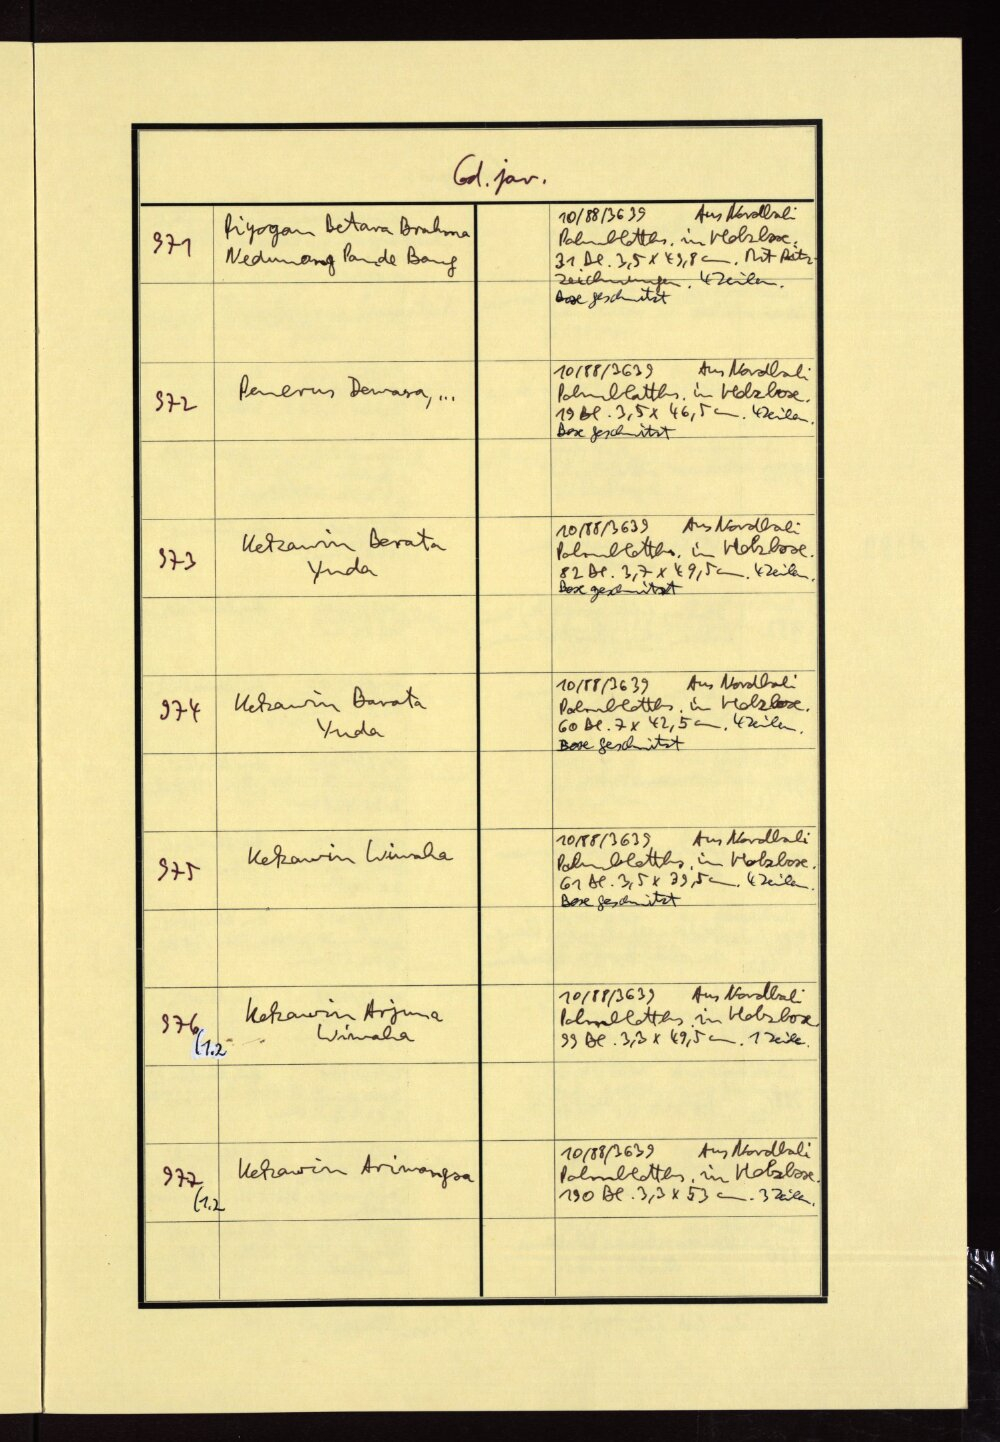 Cod. jav.
971
Piyogan Betara Brahma
Nedunang Pande Bang
10/88/3639 Aus Nordbali
Palmblatths. in Holzbox.
31 Bl. 3,5 x 49,8 cm. Mit Ritz-
zeichnungen. 4 Zeilen.
Box geschnitzt
972
Penerus Dewasa, ...
10/88/3639 Aus Nordbali
Palmblatths. in Holzbox.
19 Bl. 3,5 x 46,5 cm. 4 Zeilen.
Box geschnitzt
973
Kekawin Berata
Yuda
10/88/3639 Aus Nordbali
Palmblatths. in Holzbox.
82 Bl. 3,7 x 49,5 cm. 4 Zeilen.
Box geschnitzt
974
Kekawin Barata
Yuda
10/88/3639 Aus Nordbali
Palmblatths. in Holzbox.
60 Bl. 7 x 42,5 cm. 4 Zeilen.
Box geschnitzt
975
Kekawin Wiwaha
10/88/3639 Aus Nordbali
Palmblatths. in Holzbox.
61 Bl. 3,5 x 39,5 cm. 4 Zeilen.
Box geschnitzt
976
(1.2
Kekawin Arjuna
Wiwaha
10/88/3639 Aus Nordbali
Palmblatths. in Holzbox.
99 Bl. 3,3 x 49,5 cm. 1 Zeile.
977
(1.2
Kekawin Ariwangsa
10/88/3639 Aus Nordbali
Palmblatths. in Holzbox.
190 Bl. 3,3 x 53 cm. 3 Zeilen.